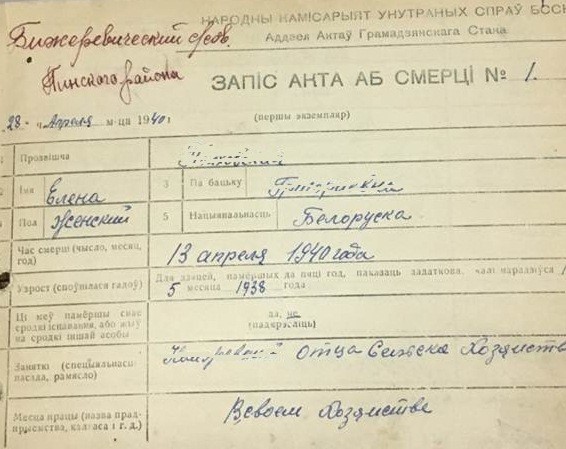 НАРОДНЫ КАМІСАРЫЯТ УНУТРАНЫХ СПРАЎ БССР
Аддзел Актаў Грамадзянскага Стана
Бижеревический с/сов.
Пинского района
ЗАПІС АКТА АБ СМЕРЦІ № 1.
28 ч. Апреля м-ца 1940 г
(першы экземпляр)
1 Прозвішча
2 Імя Елена 3 Па бацьку
4 Пол Женский 5 Нацыянальнасць Белоруска
Час смерці (чысло, месяц, год) 13 апреля 1940 года
Узрост (споўнілася гадоў) Для дзяцей, памёршых да пяці год, паказаць задаткова, калі нарадзіўся
5 месяца 1938 года
Ці меў памёршы свае сродкі існавання, або жыў на сродкі іншай асобы да, не (падкрэсліць)
Заняткі (спецыяльнасць, пасада, рамясло) отца Сельско Хозяйств
Месца працы (назва прадпрыемства, калгаса і г. д.) В своем Хозяйстве